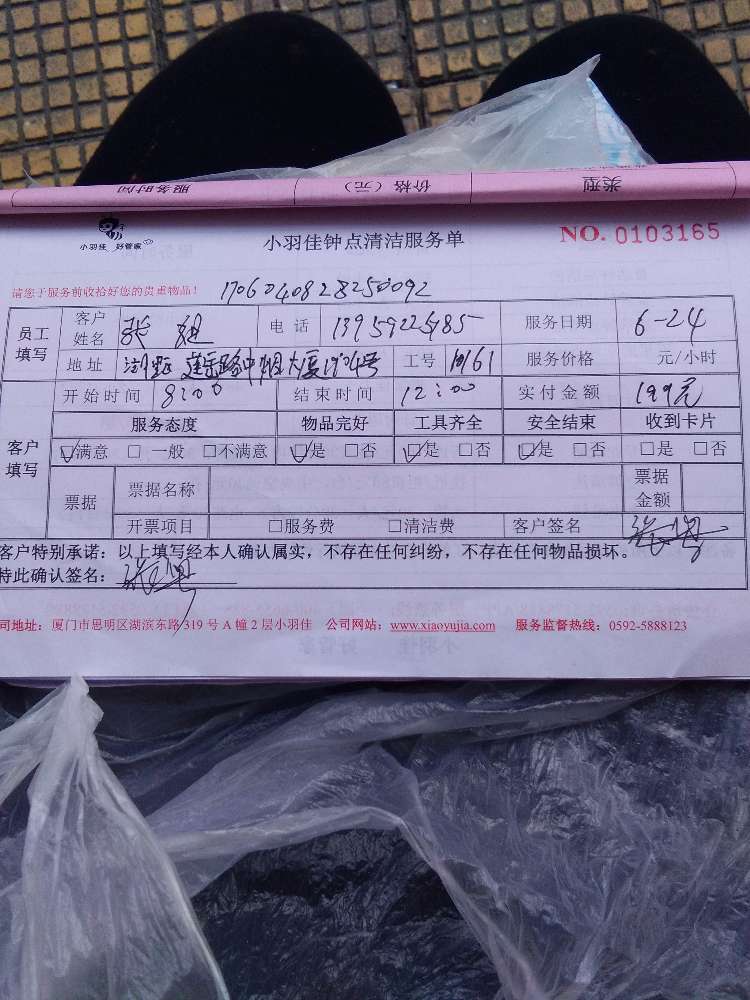 服务时间 价格（元） 类型
小羽佳 好管家
小羽佳钟点清洁服务单
NO. 0103165
请您于服务前收拾好您的贵重物品！ 1706040828250092
员工填写 客户姓名 张 电话 服务日期 6-24
地址 大厦 号 工号 服务价格 元/小时
客户填写 开始时间 8:00 结束时间 12:00 实付金额 199元
服务态度 物品完好 工具齐全 安全结束 收到卡片
☑满意 □一般 □不满意 ☑是 □否 ☑是 □否 ☑是 □否 □是 □否
票据 票据名称 票据金额
开票项目 □服务费 □清洁费 客户签名
客户特别承诺：以上填写经本人确认属实，不存在任何纠纷，不存在任何物品损坏。
特此确认签名：
司地址：厦门市思明区湖滨东路 319 号 A 幢 2 层小羽佳 公司网站：www.xiaoyujia.com 服务监督热线：0592-5888123